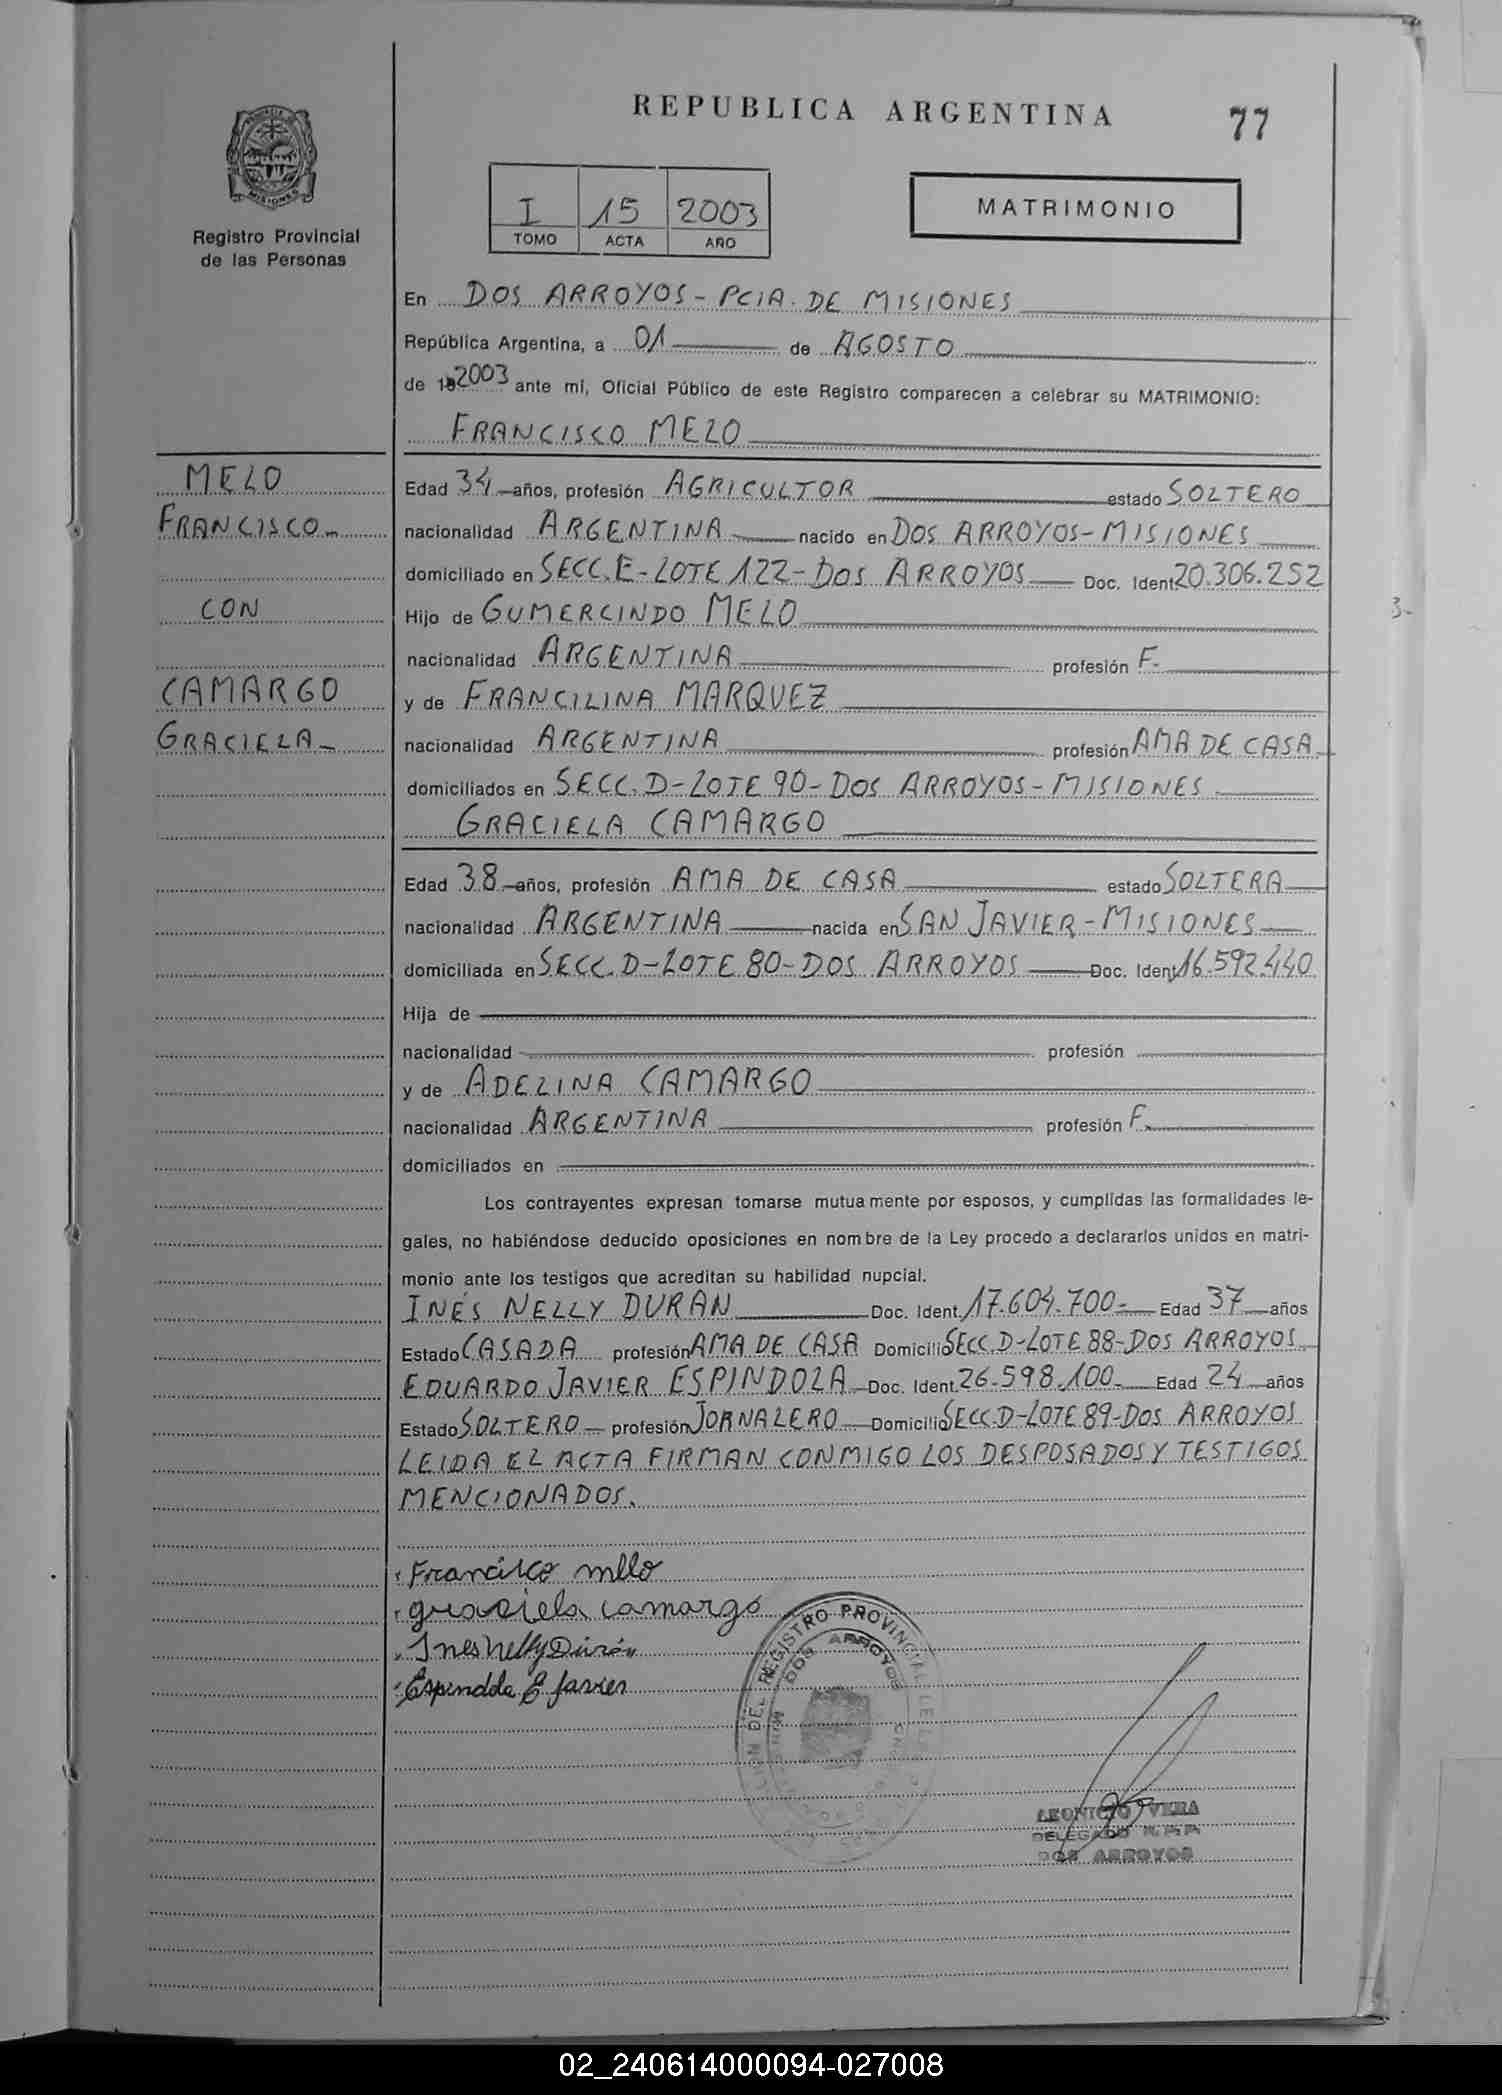 REPUBLICA ARGENTINA
77
Registro Provincial
de las Personas
I 15 2003
TOMO ACTA AÑO
MATRIMONIO
En DOS ARROYOS - PCIA. DE MISIONES
República Argentina, a 01 de AGOSTO
de 2003 ante mí, Oficial Público de este Registro comparecen a celebrar su MATRIMONIO:
FRANCISCO MELO
MELO
FRANCISCO
CON
CAMARGO
GRACIELA
Edad 34 años, profesión AGRICULTOR estado SOLTERO
nacionalidad ARGENTINA nacido en DOS ARROYOS - MISIONES
domiciliado en SECC. E - LOTE 122 - DOS ARROYOS Doc. Ident. 20.306.252
Hijo de GUMERCINDO MELO
nacionalidad ARGENTINA profesión F.
y de FRANCILINA MARQUEZ
nacionalidad ARGENTINA profesión AMA DE CASA
domiciliados en SECC. D - LOTE 90 - DOS ARROYOS - MISIONES
GRACIELA CAMARGO
Edad 38 años, profesión AMA DE CASA estado SOLTERA
nacionalidad ARGENTINA nacida en SAN JAVIER - MISIONES
domiciliada en SECC. D - LOTE 80 - DOS ARROYOS Doc. Ident. 16.592.440
Hija de
nacionalidad profesión
y de ADELINA CAMARGO
nacionalidad ARGENTINA profesión F.
domiciliados en
Los contrayentes expresan tomarse mutuamente por esposos, y cumplidas las formalidades le-
gales, no habiéndose deducido oposiciones en nombre de la Ley procedo a declararlos unidos en matri-
monio ante los testigos que acreditan su habilidad nupcial.
INÉS NELLY DURAN Doc. Ident. 17.604.700 Edad 37 años
Estado CASADA profesión AMA DE CASA Domicilio SECC. D - LOTE 88 - DOS ARROYOS
EDUARDO JAVIER ESPINDOLA Doc. Ident. 26.598.100 Edad 24 años
Estado SOLTERO profesión JORNALERO Domicilio SECC. D - LOTE 89 - DOS ARROYOS
LEIDA EL ACTA FIRMAN CONMIGO LOS DESPOSADOS Y TESTIGOS
MENCIONADOS.
Francisco mllo
graciela camargo
Ines Nelly Durán
Espindola E Javier
DEL REGISTRO PROVINCIAL DE
DOS ARROYOS
LEONICIO VERA
DELEGADO R.P.P.
DOS ARROYOS
02_240614000094-027008